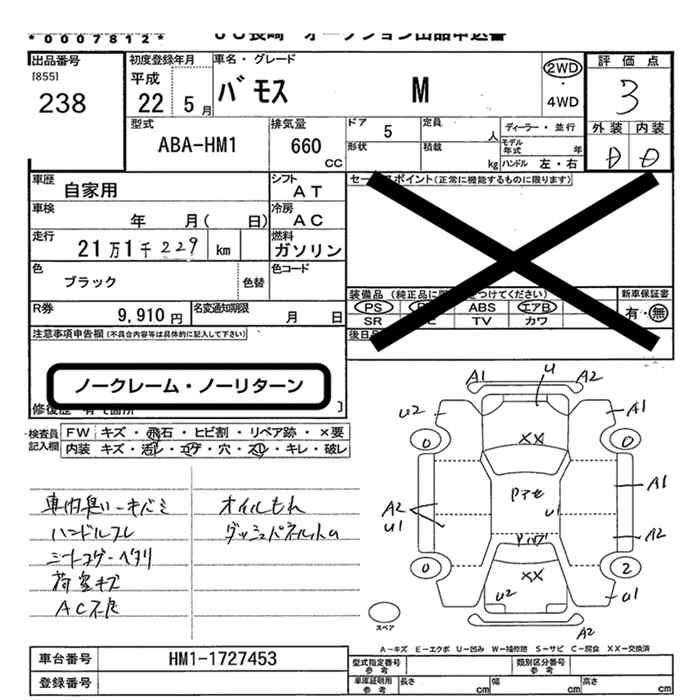 *0007812*
JU長崎 オークション出品申込書
出品番号 [855] 238
初度登録年月 平成22 5月
車名・グレード バモス M
2WD・4WD
評価点 3
外装 内装
D D
型式 ABA-HM1
排気量 660 cc
ドア 5
定員 人
形状
積載 kg
ディーラー・並行
モデル年式 年
ハンドル 左・右
車歴 自家用
シフト AT
車検 年 月( 日)
冷房 AC
走行 21万1千229 km
燃料 ガソリン
色 ブラック 色替
色コード
R券 9,910円
名変通知期限 月 日
セールスポイント(正常に機能するものに限ります)
装備品 (純正品に つけてください)
PS ABS エアB
SR TV カワ
新車保証書 有・無
後日
注意事項申告欄 (不具合内容等は具体的に記入して下さい)
ノークレーム・ノーリターン
検査員記入欄
FW キズ・飛石・ヒビ割・リペア跡・×要
内装 キズ・汚レ・コゲ・穴・スレ・キレ・破レ
車内臭い・キバミ
ハンドルスレ
シートコゲ・ヘタリ
荷室キズ
AC不良
オイルもれ
A1 U A2
U2 A1
0 0
XX
Pアセ
A2 U1
U1
A1
A2
0 2
XX
U2
U1
A2
スペア
A-キズ E-エクボ U-凹み W-補修跡 S-サビ C-腐食 XX-交換済
車台番号 HM1-1727453
登録番号
型式指定番号 参考
類別区分番号 参考
車庫証明用 参考 長さ cm 幅 cm 高さ cm